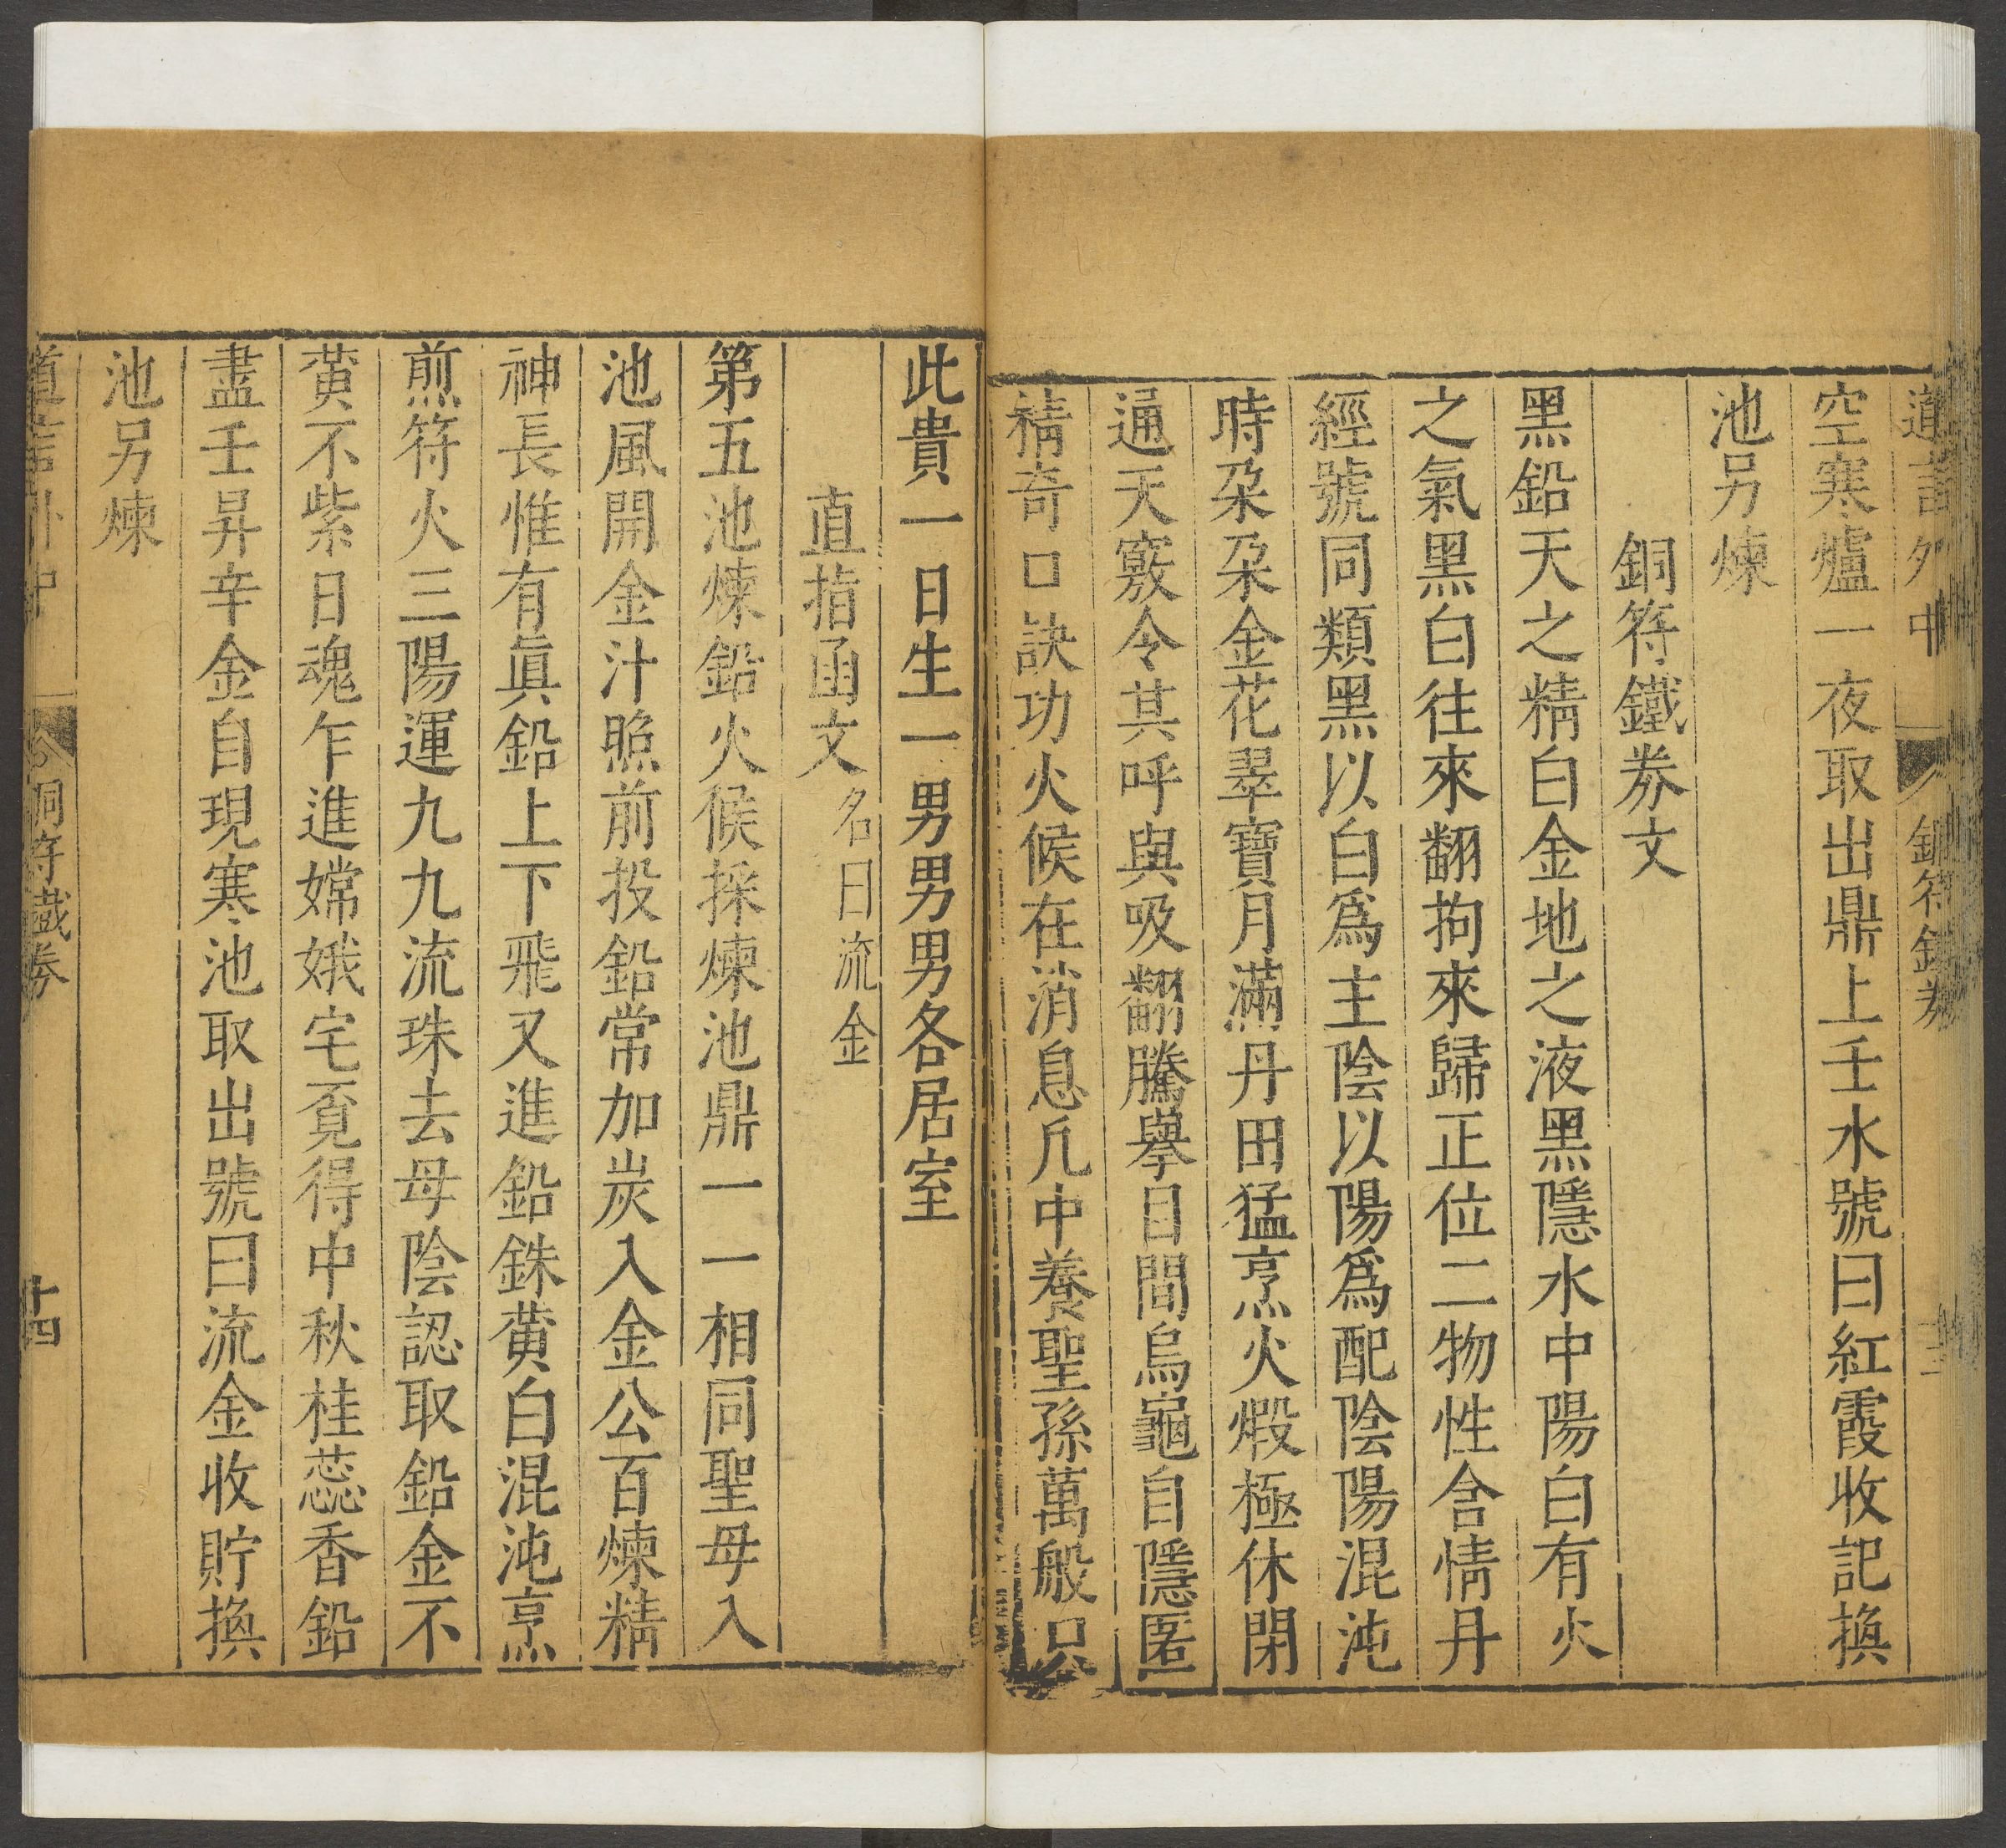 道言外中 銅符鐵券
空寒爐一夜取出鼎上壬水號曰紅霞收記換
池另煉
銅符鐵券文
黑鉛天之精白金地之液黑隱水中陽白有火
之氣黑白往來翻拘來歸正位二物性含情丹
經號同類黑以白爲主陰以陽爲配陰陽混沌
時朶朶金花翠寶月滿丹田猛烹火煆極休閉
通天竅令其呼與吸翻騰擧目間烏龜自隱匿
精奇口訣功火候在消息凡中養聖孫萬般只
此貴一日生一男男男各居室
直指函文 名曰流金
第五池煉鉛火候採煉池鼎一一相同聖母入
池風開金汁照前投鉛常加炭入金公百煉精
神長惟有眞鉛上下飛又進鉛銖黄白混沌烹
煎符火三陽運九九流珠去母陰認取鉛金不
黄不紫日魂乍進嫦娥宅覔得中秋桂蕊香鉛
盡壬昇辛金自現寒池取出號曰流金收貯換
池另煉
道言外中 銅符鐵券 十四